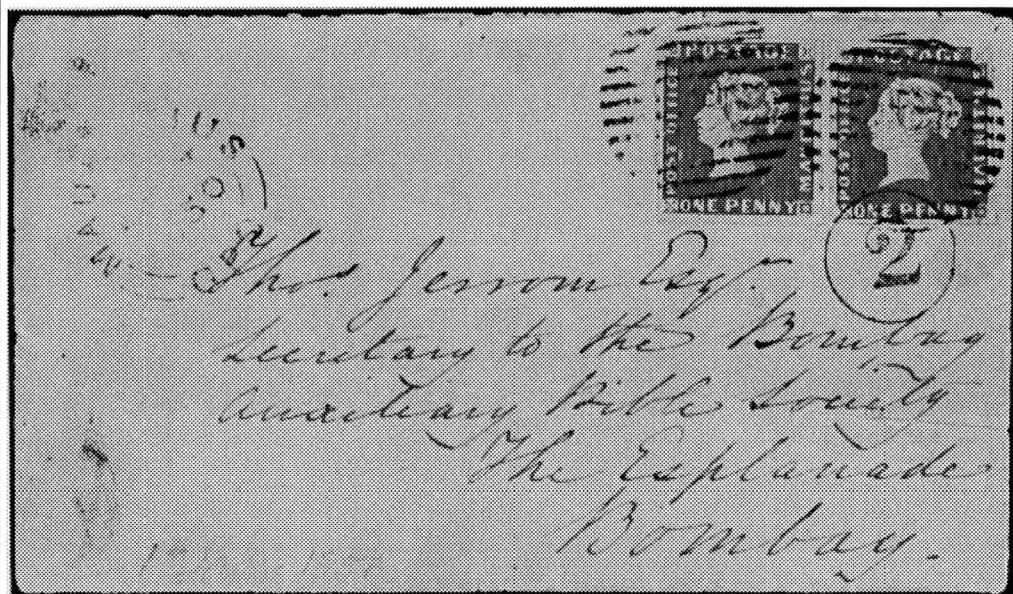 POSTAGE
POST OFFICE
ONE PENNY
POSTAGE
POST OFFICE
ONE PENNY
2
Thos. Jerrom Esqr.
Secretary to the Bombay
Auxiliary Bible Society
The Esplanade
Bombay.